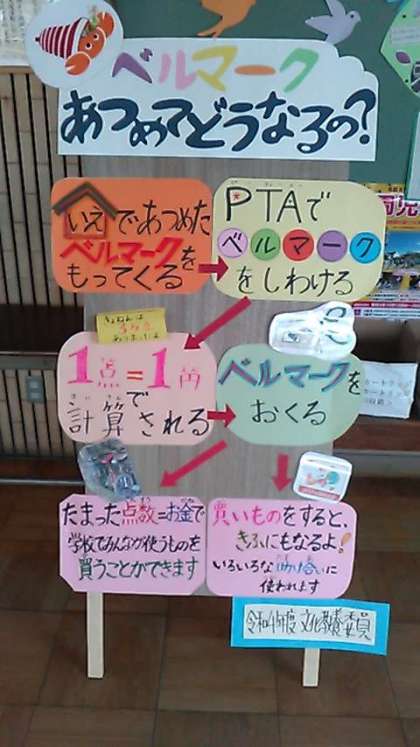 ベルマーク
あつめてどうなるの?
いえであつめた
ベルマークを
もってくる
PTAで
ベルマーク
をしわける
きょねんは
1点=1円
で
計算される
ベルマークを
おくる
たまった点数=お金で
学校でみんなが使うものを
買うことができます
買いものをすると、
きふにもなるよ!
いろいろな助け合いに
使われます
令和4年度 文化教養委員